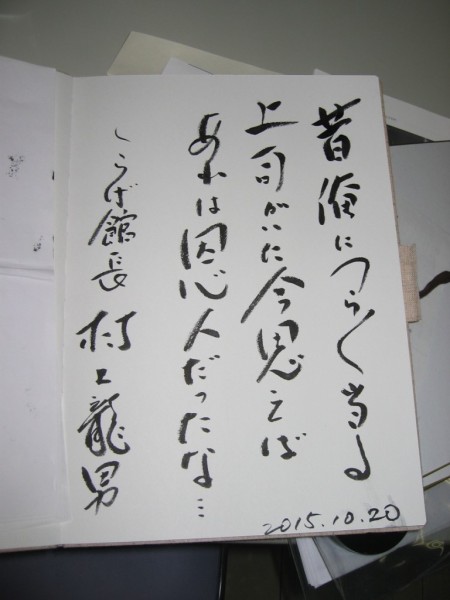 昔俺につらく当る
上司がいた今思えば
あれは恩人だったな…
くらげ館長 村上龍男
2015.10.20